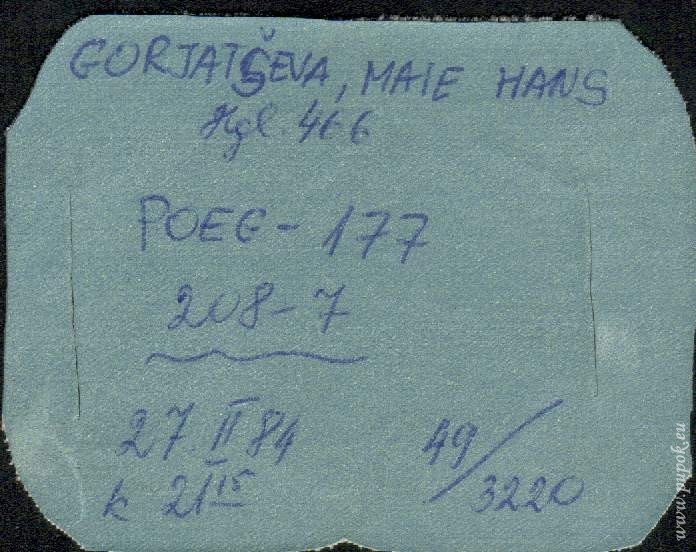 GORJATŠEVA, MAIE HANS
Hgl. 46 6
POEG - 177
208-7
27. II 84
k 21 15
49/3220
www.pypok.eu